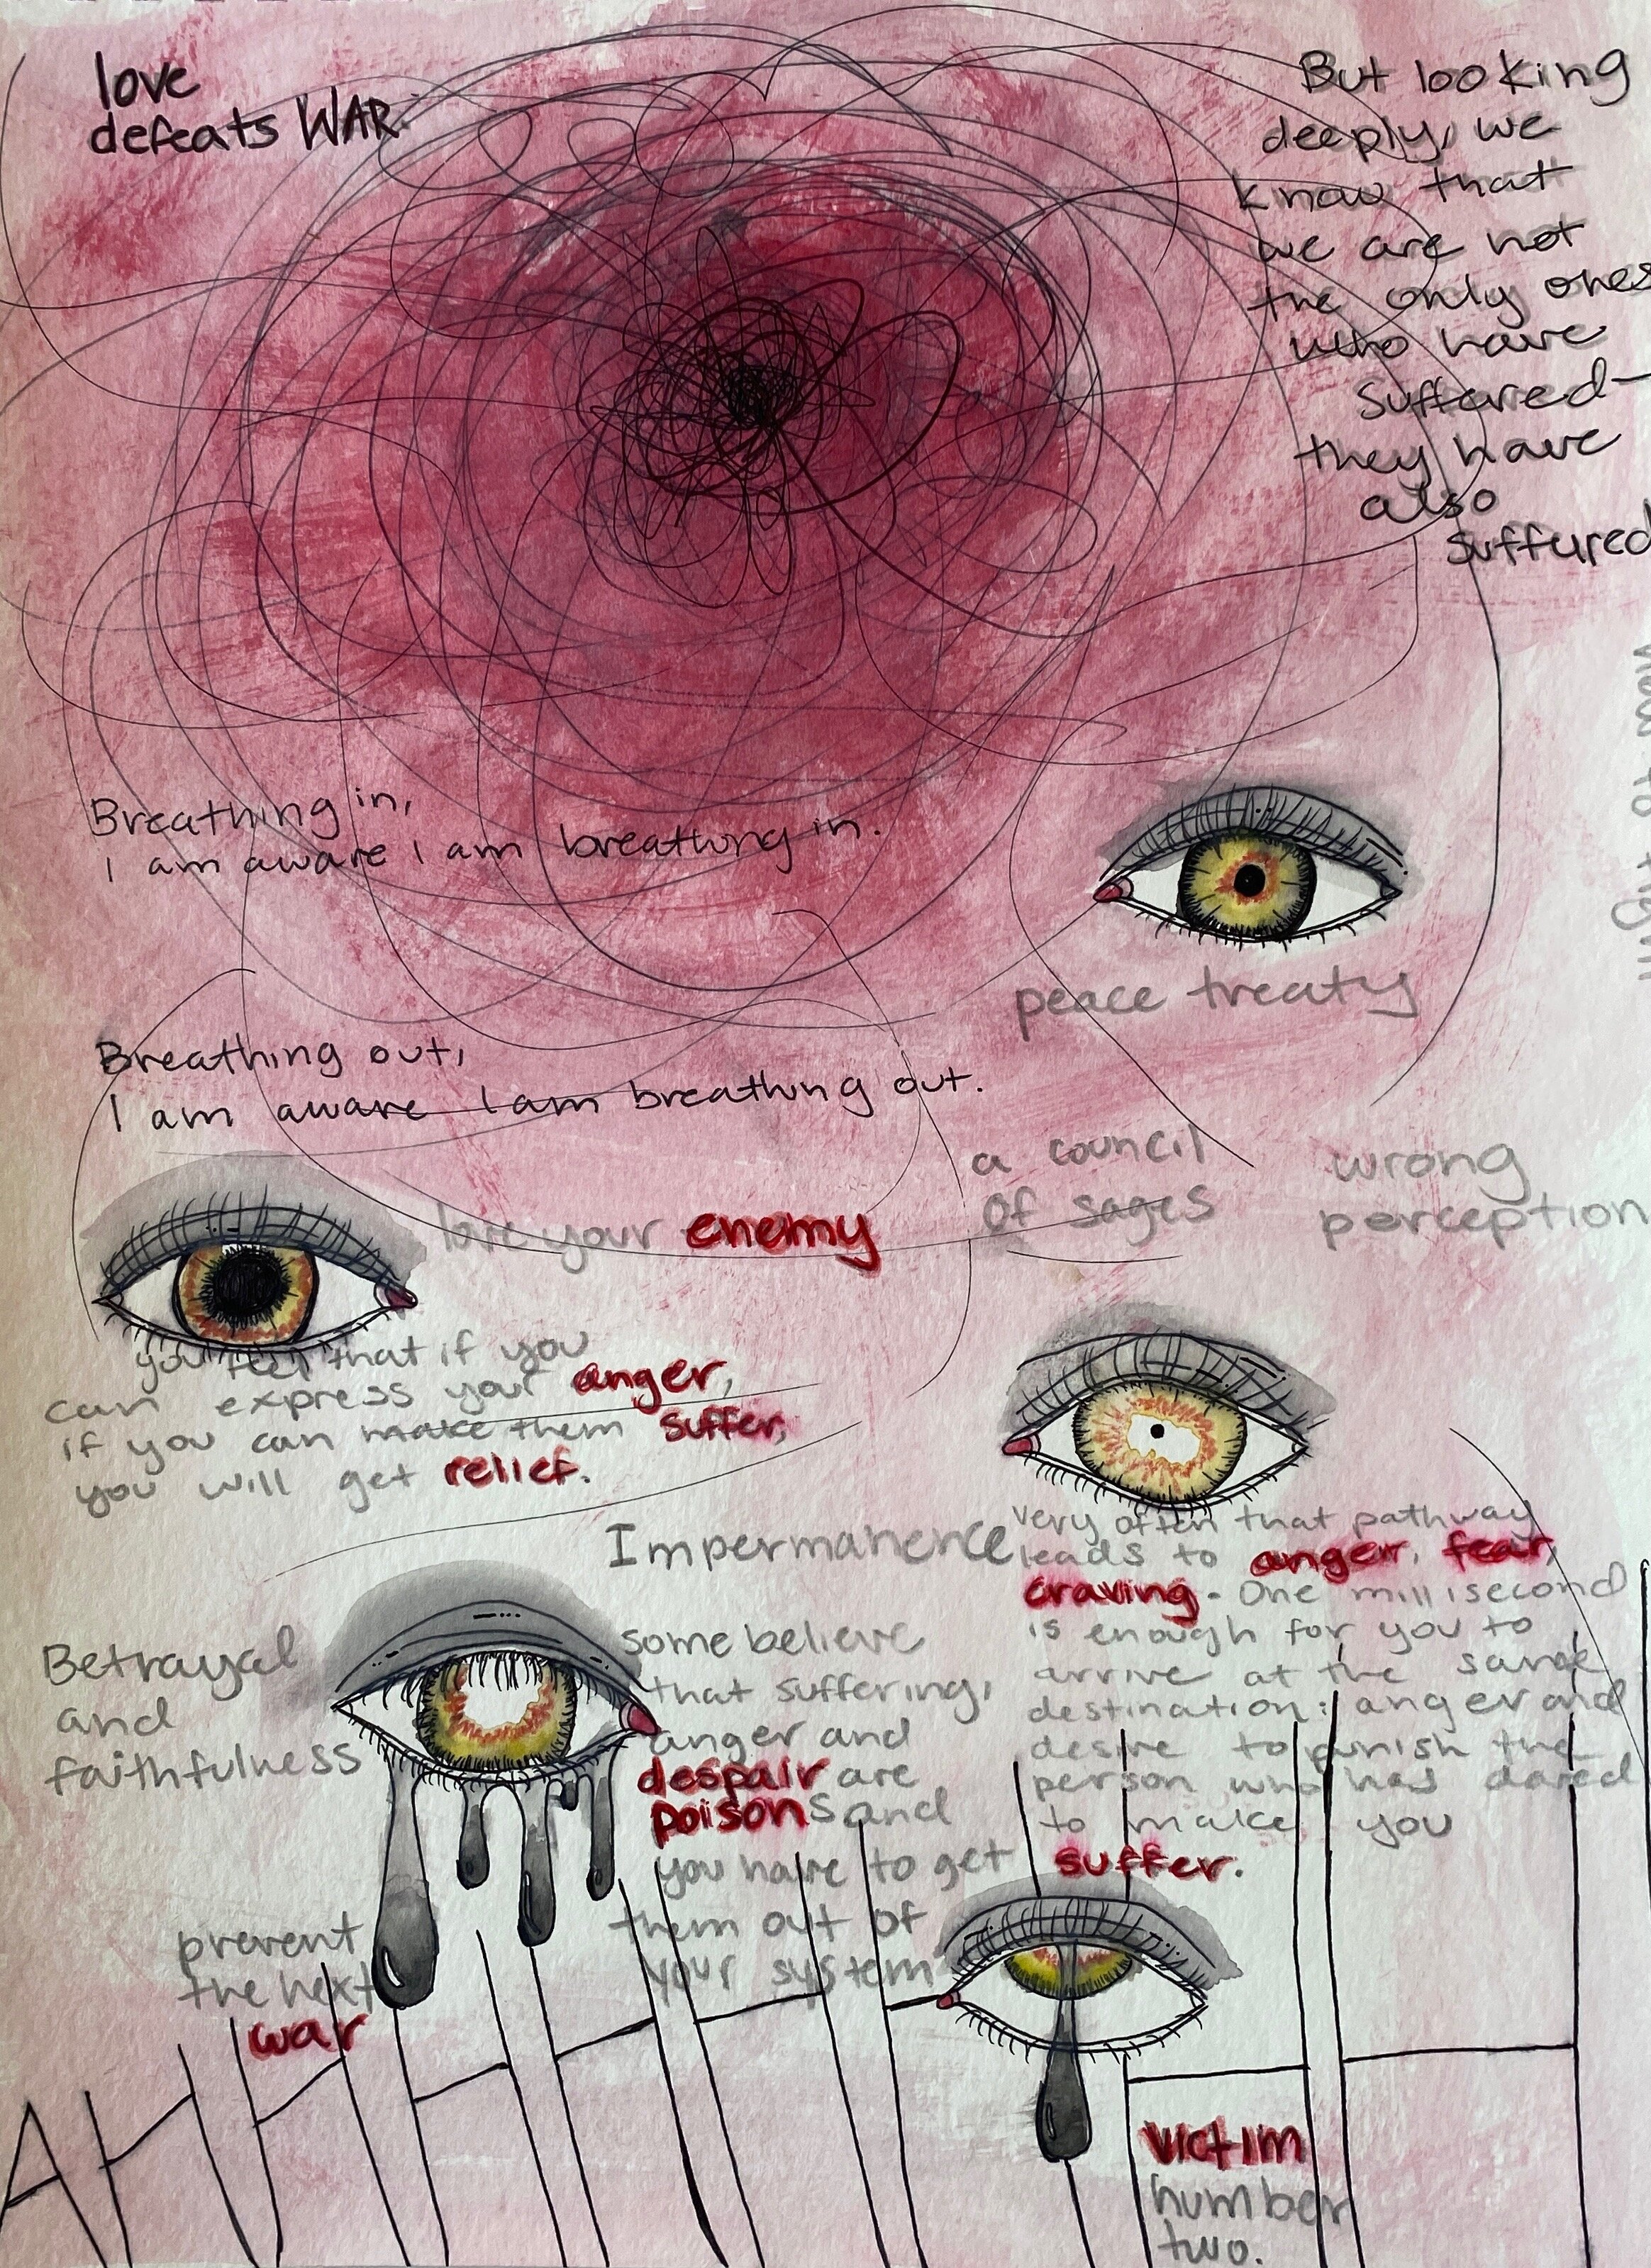 love
defeats WAR.
But looking
deeply, we
know that
we are not
the only ones
who have
suffered—
they have
also
suffured
Breathing in,
I am aware I am breathing in.
peace treaty
Breathing out,
I am aware I am breathing out.
a council
of sages
wrong
perception
love your enemy
you feel that if you
can express your anger,
if you can make them suffer,
you will get relief.
Impermanence
very often that pathway
leads to anger, fear,
craving. One millisecond
is enough for you to
arrive at the same
destination: anger and
desire to punish the
person who has dared
to make you
suffer.
Betrayal
and
faithfulness
some believe
that suffering,
anger and
despair are
poisons and
you have to get
them out of
your system
prevent
the next
war
AHHHHHHH
victim
number
two.